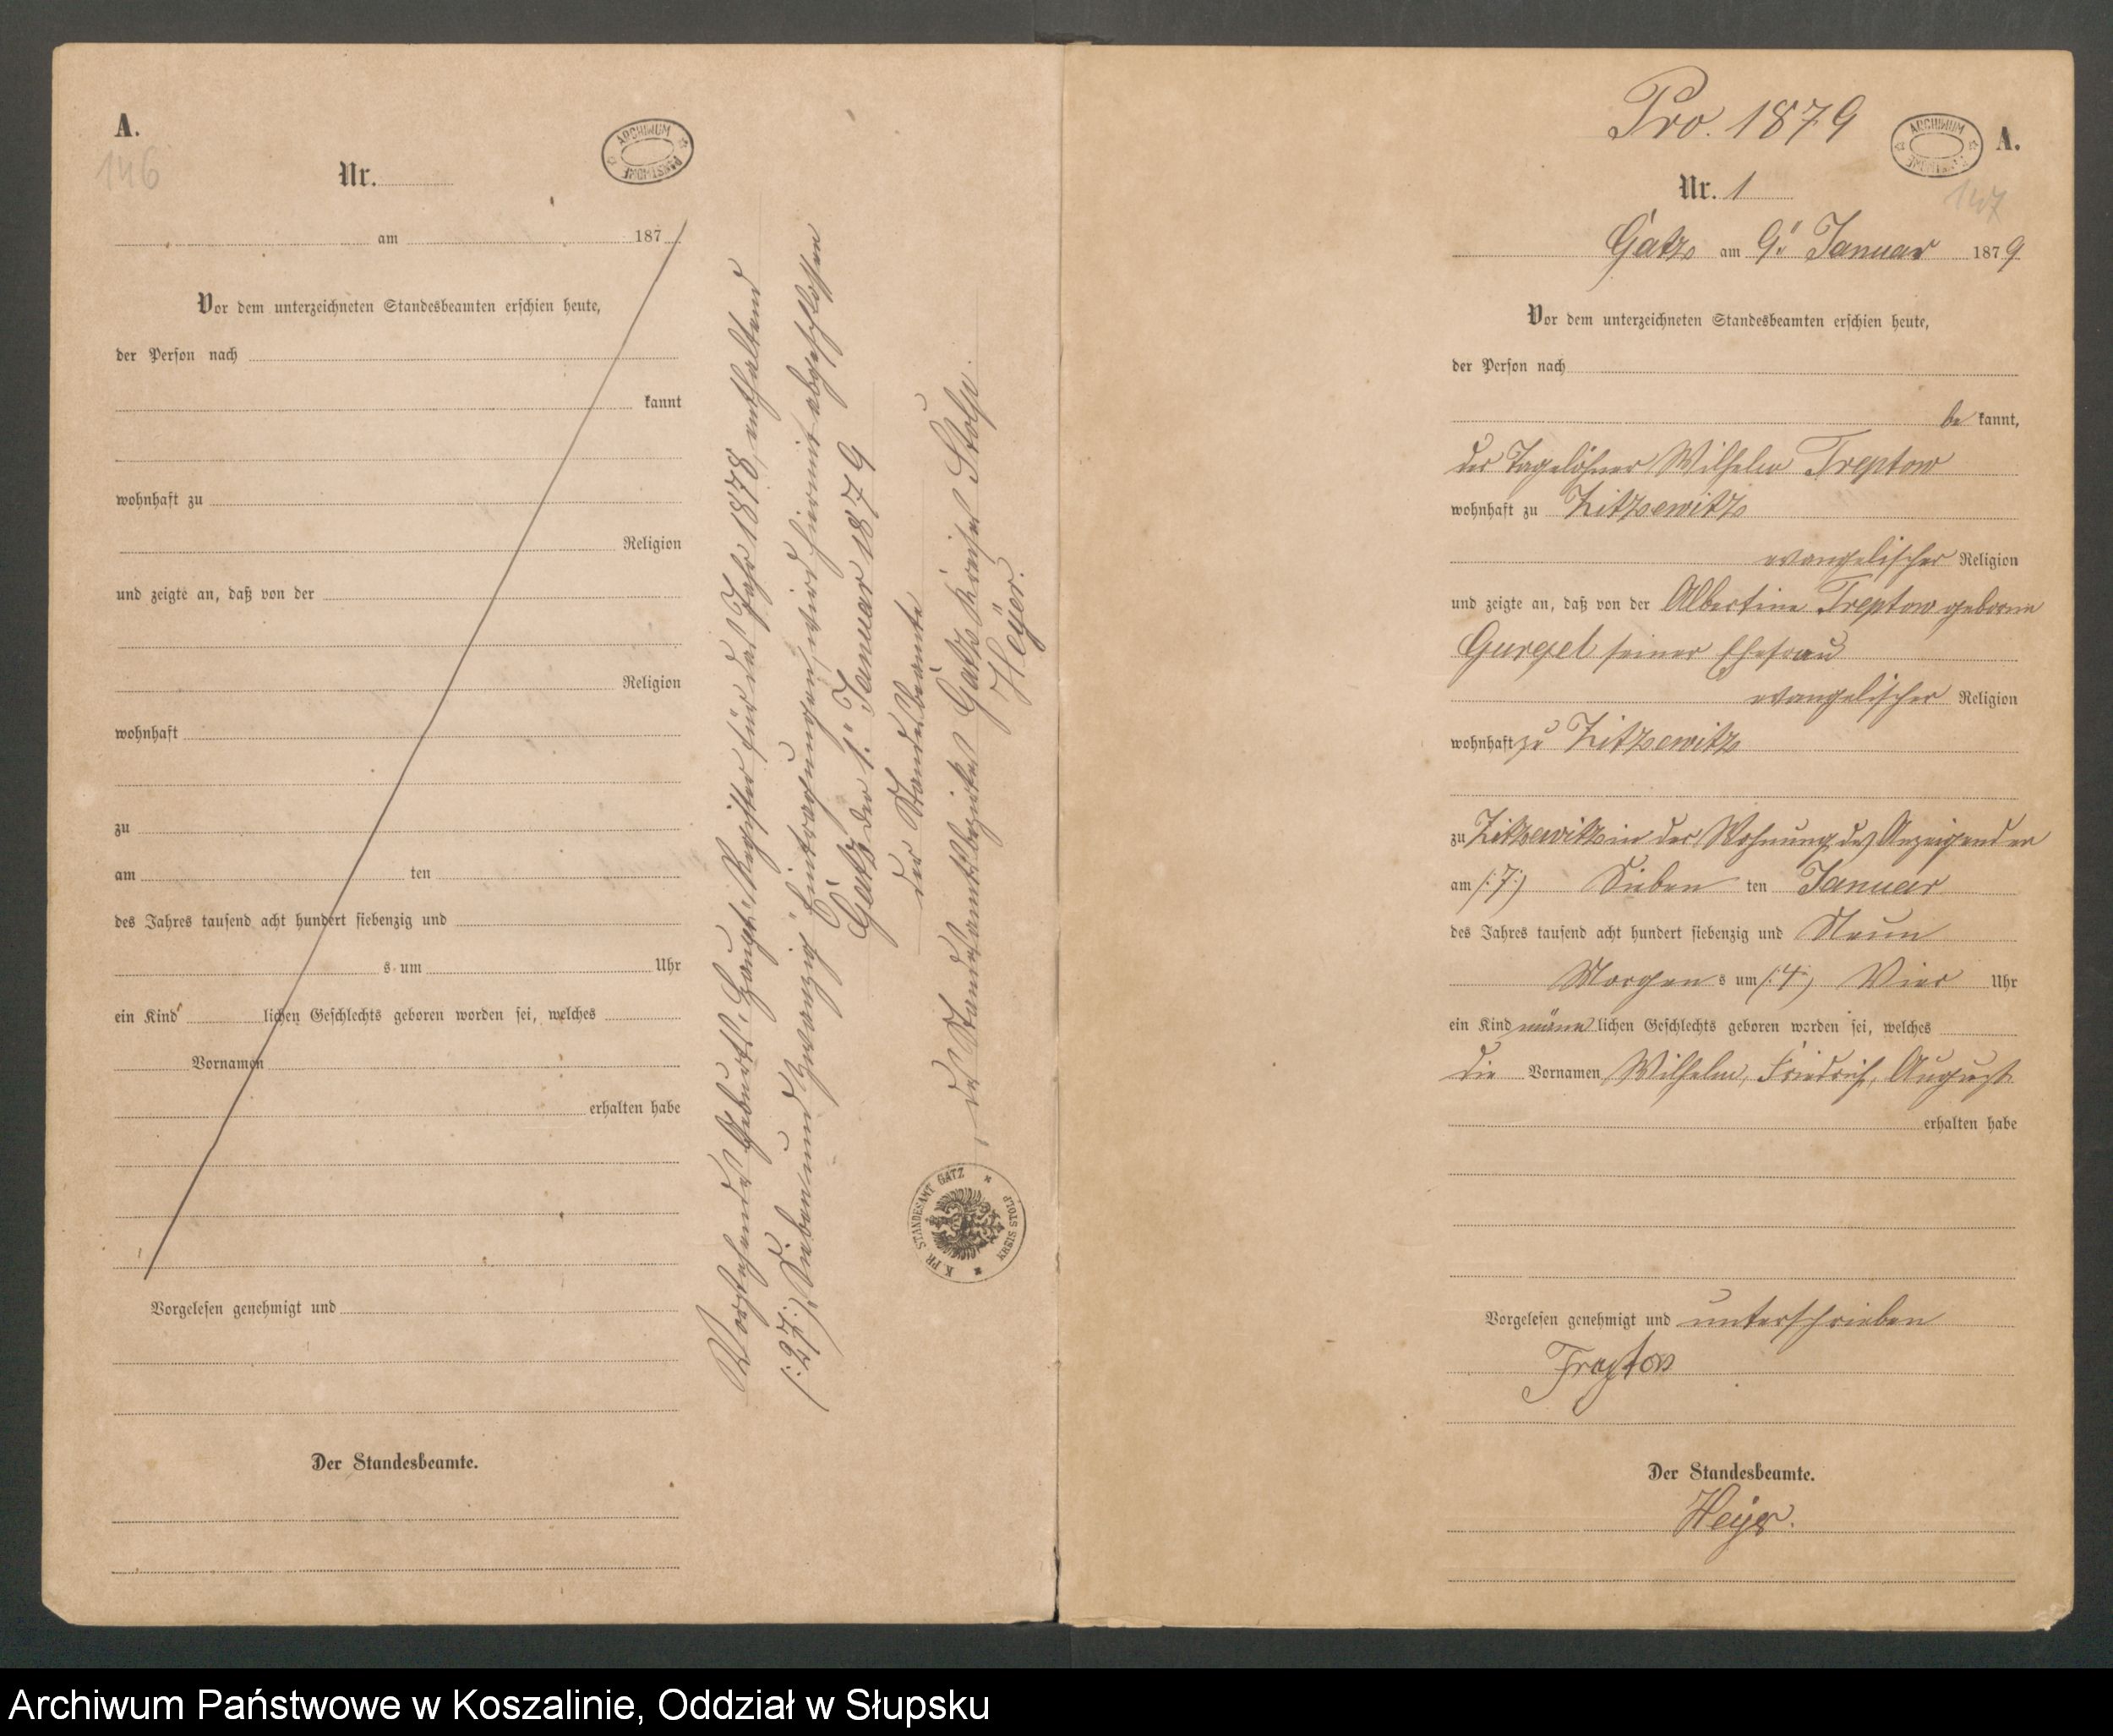 A.
146
ARCHIWUM PAŃSTWOWE
Nr.
am 187
Vor dem unterzeichneten Standesbeamten erschien heute,
der Person nach
kannt
wohnhaft zu
Religion
und zeigte an, daß von der
Religion
wohnhaft
zu
am ten
des Jahres tausend acht hundert siebenzig und
s um Uhr
ein Kind lichen Geschlechts geboren worden sei, welches
Vornamen
erhalten habe
Vorgelesen genehmigt und
Der Standesbeamte.
Vorstehendes Geburts-Haupt-Register für das Jahr 1878, enthaltend
/:27:/ Sieben und Zwanzig Eintragungen, wird hiermit abgeschlossen
Gatz der 1." Januar 1879
der Standesbeamte
des Standesamtsbezirkes Gatz Kreises Stolp.
Heyer.
K. PR. STANDESAMT GATZ * KREIS STOLP *
Pro. 1879
ARCHIWUM PAŃSTWOWE
A.
147
Nr. 1
Gatz am 9." Januar 1879
Vor dem unterzeichneten Standesbeamten erschien heute,
der Person nach
be kannt,
der Tagelöhner Wilhelm Treptow
wohnhaft zu Zitzewitz
evangelischer Religion
und zeigte an, daß von der Albertine Treptow geborne
Gurgel seiner Ehefrau
evangelischer Religion
wohnhaft zu Zitzewitz
zu Zitzewitz in der Wohnung des Anzeigenden
am /:7:/ Sieben ten Januar
des Jahres tausend acht hundert siebenzig und Neun
Morgens um /:4:/ Vier Uhr
ein Kind männlichen Geschlechts geboren worden sei, welches
die Vornamen Wilhelm, Friedrich, August
erhalten habe
Vorgelesen genehmigt und unterschrieben
Treptow
Der Standesbeamte.
Heyer.
Archiwum Państwowe w Koszalinie, Oddział w Słupsku